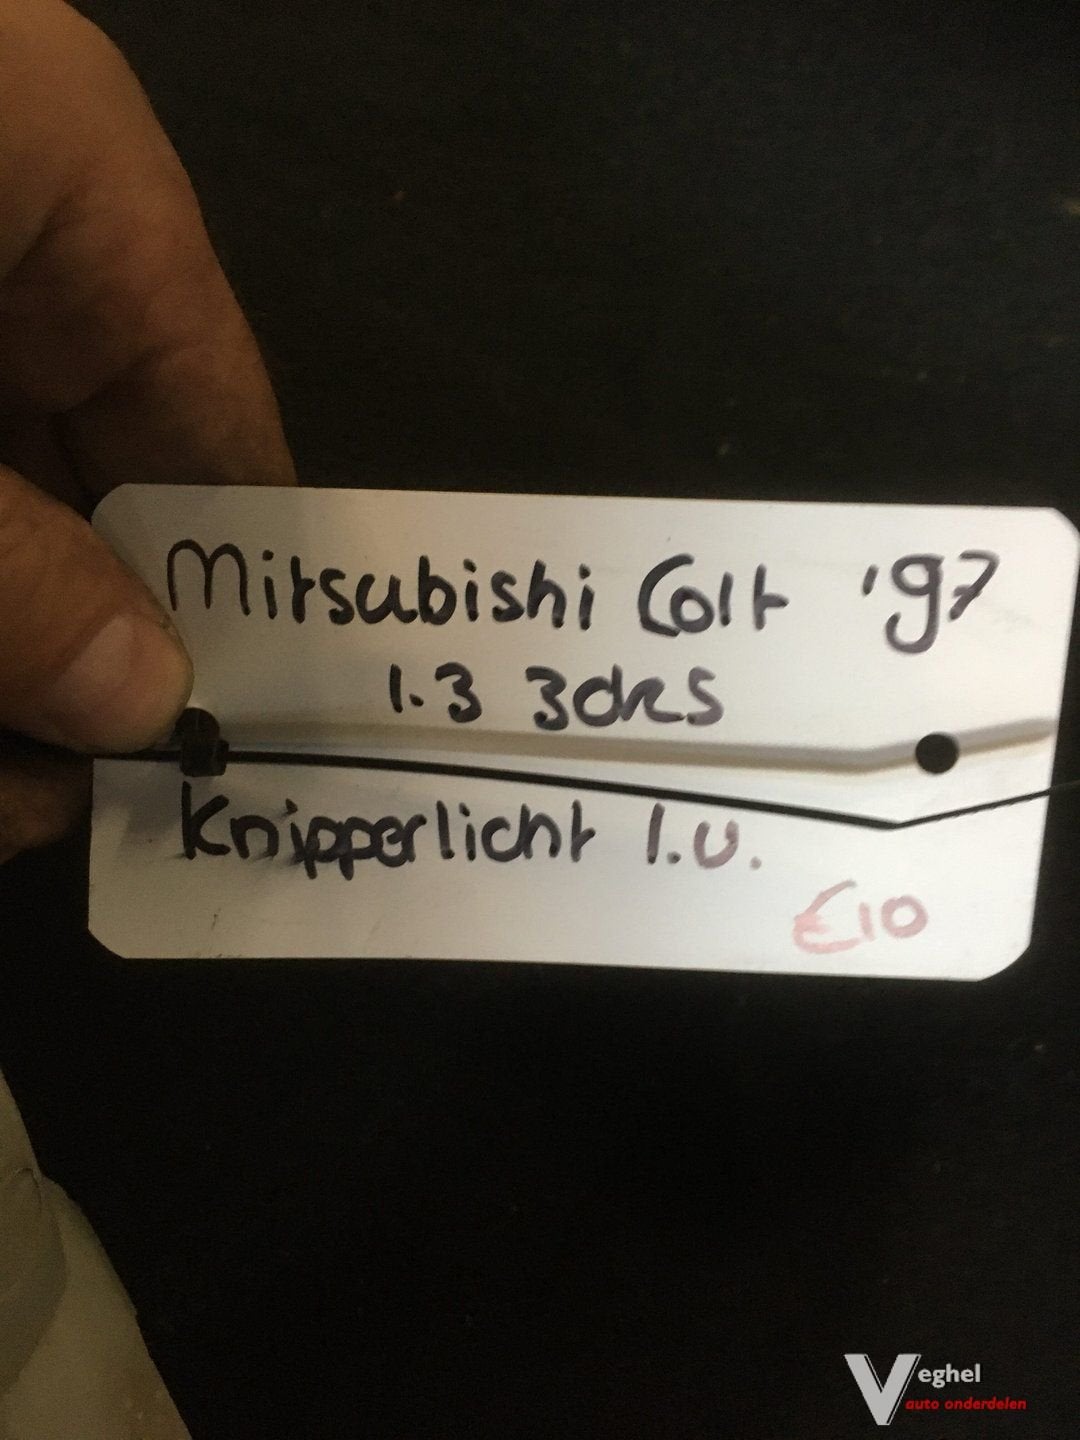 Mitsubishi Colt '97
1.3 3drs
Knipperlicht l.v.
€10
Veghel
auto onderdelen